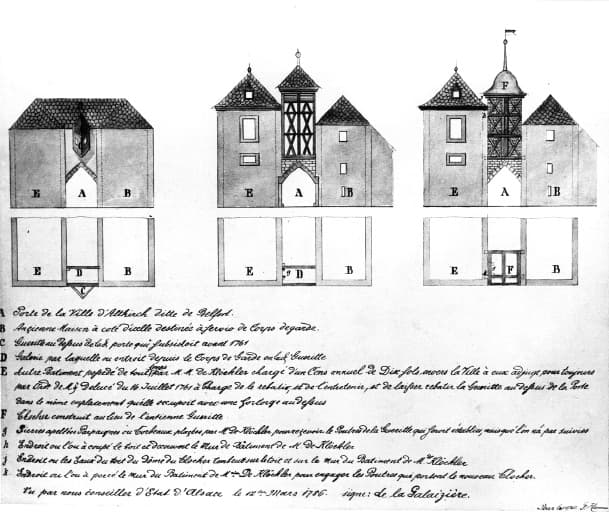 F
E A B
E A B
E A B
E D B
C
E g D B
E F B
A Porte de la Ville d'Altkirch ditte de Belfort.
B Ancienne Maison à coté d'icelle destinée à servir de Corps de garde.
C Gueritte au dessus de lad. porte qui subsistoit avant 1761
D Galerie par laquelle on entroit depuis le Corps de Garde en lad. Gueritte
E Autre Batiment possedé de tout tems par M. M. de Klöckler chargé d'un Cens annuel de Dix sols envers la Ville à eux adjugé pour toujours
par lad. de Mgr Delucé du 16 Juillet 1761 à Charge de le rebatir, et de l'entretenir, et de laisser rebatir la Gueritte au dessus de la Porte
dans le même emplacement qu'elle occupoit avec une horloge au dessus
F Clocher construit au lieu de l'antienne Gueritte
g Pierres apellées Parpagnes ou Corbeaux, placées par Mr de Klöckler pour recevoir les Poutres de la Gueritte qui furent etablies, mais que l'on n'a pas suivies
h Endroit ou l'on à coupé le toit et decouvert le Mur du Batiment de Mr De Klöckler
j Endroit ou les Eaux du toit du Dôme du Clocher tombent sur le toit et sur le mur du Batiment de Mr Klöckler
k Endroit ou l'on à percé le mur du Batiment de Mr De Klöckler, pour engager les Poutres qui portent le nouveau Clocher.
Vu par nous conseiller d'Etat d'Alsace le 12me Mars 1786. signé: de la Galaizière.